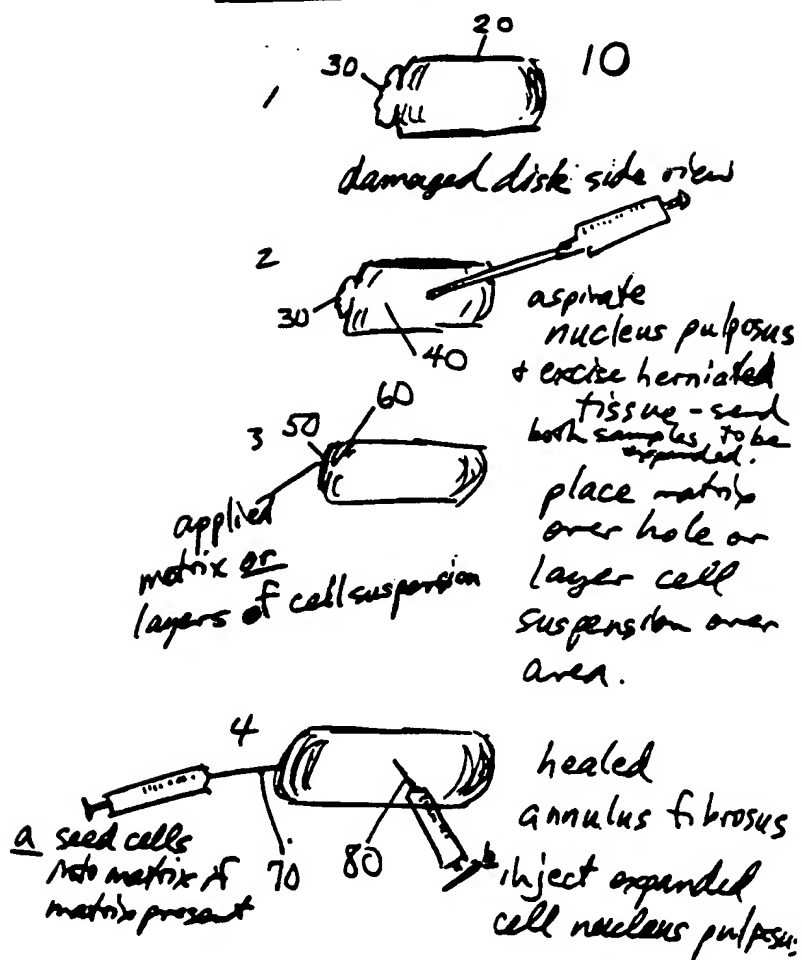 20
30
10
1
damaged disk side view
2
30
40
aspirate
nucleus pulposus
+ excise herniated
tissue - send
both samples to be
expanded.
3 50
60
applied
matrix or
layers of cell suspension
place matrix
over hole or
layer cell
suspension over
area.
4
healed
annulus fibrosus
a seed cells
into matrix if
matrix present
70
80
b inject expanded
cell nucleus pulposus